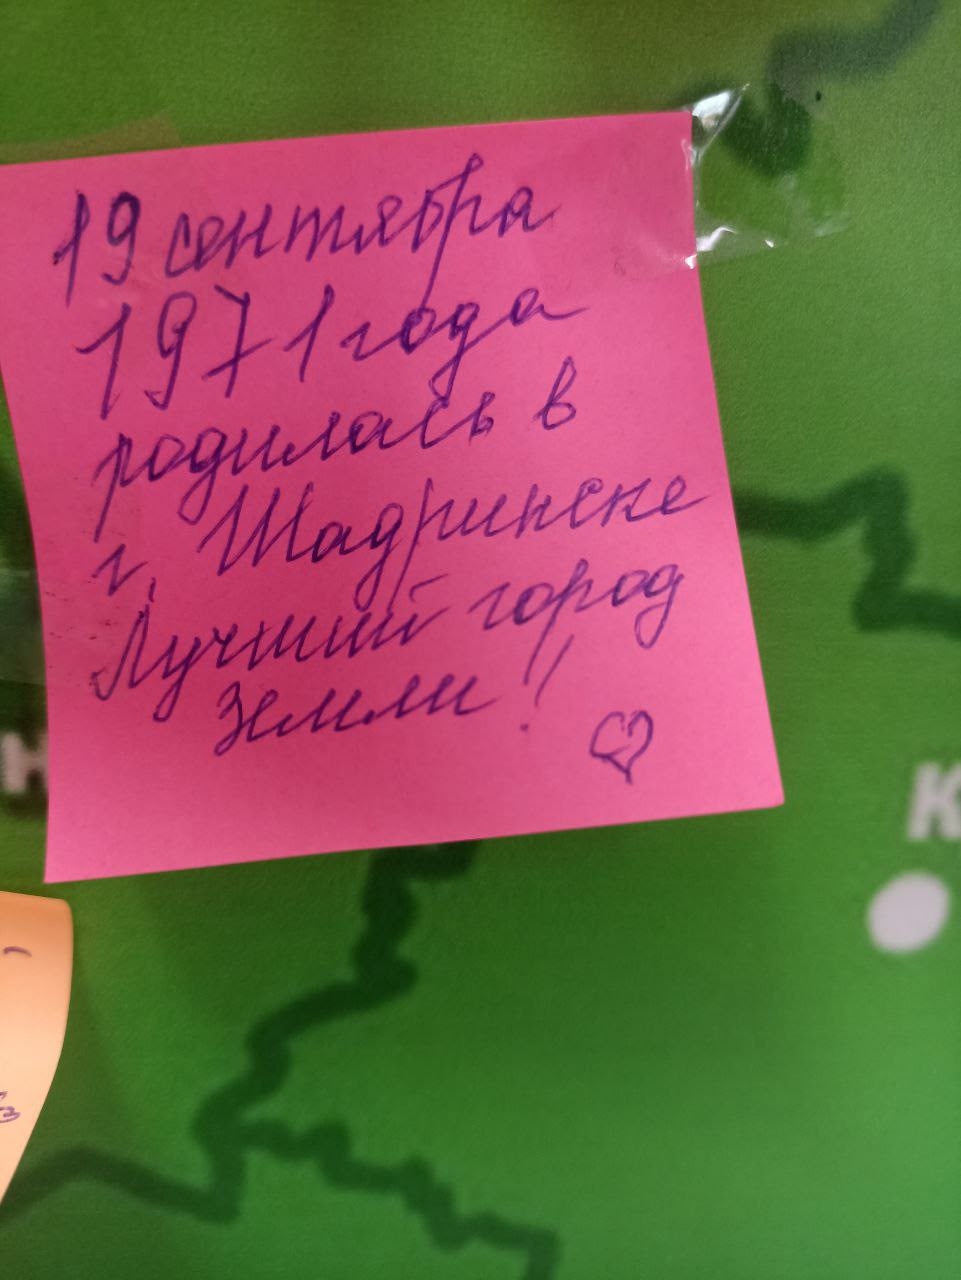 19 сентября
1971 года
родилась в
г. Шадринске
Лучший город
Земли!
Н
К